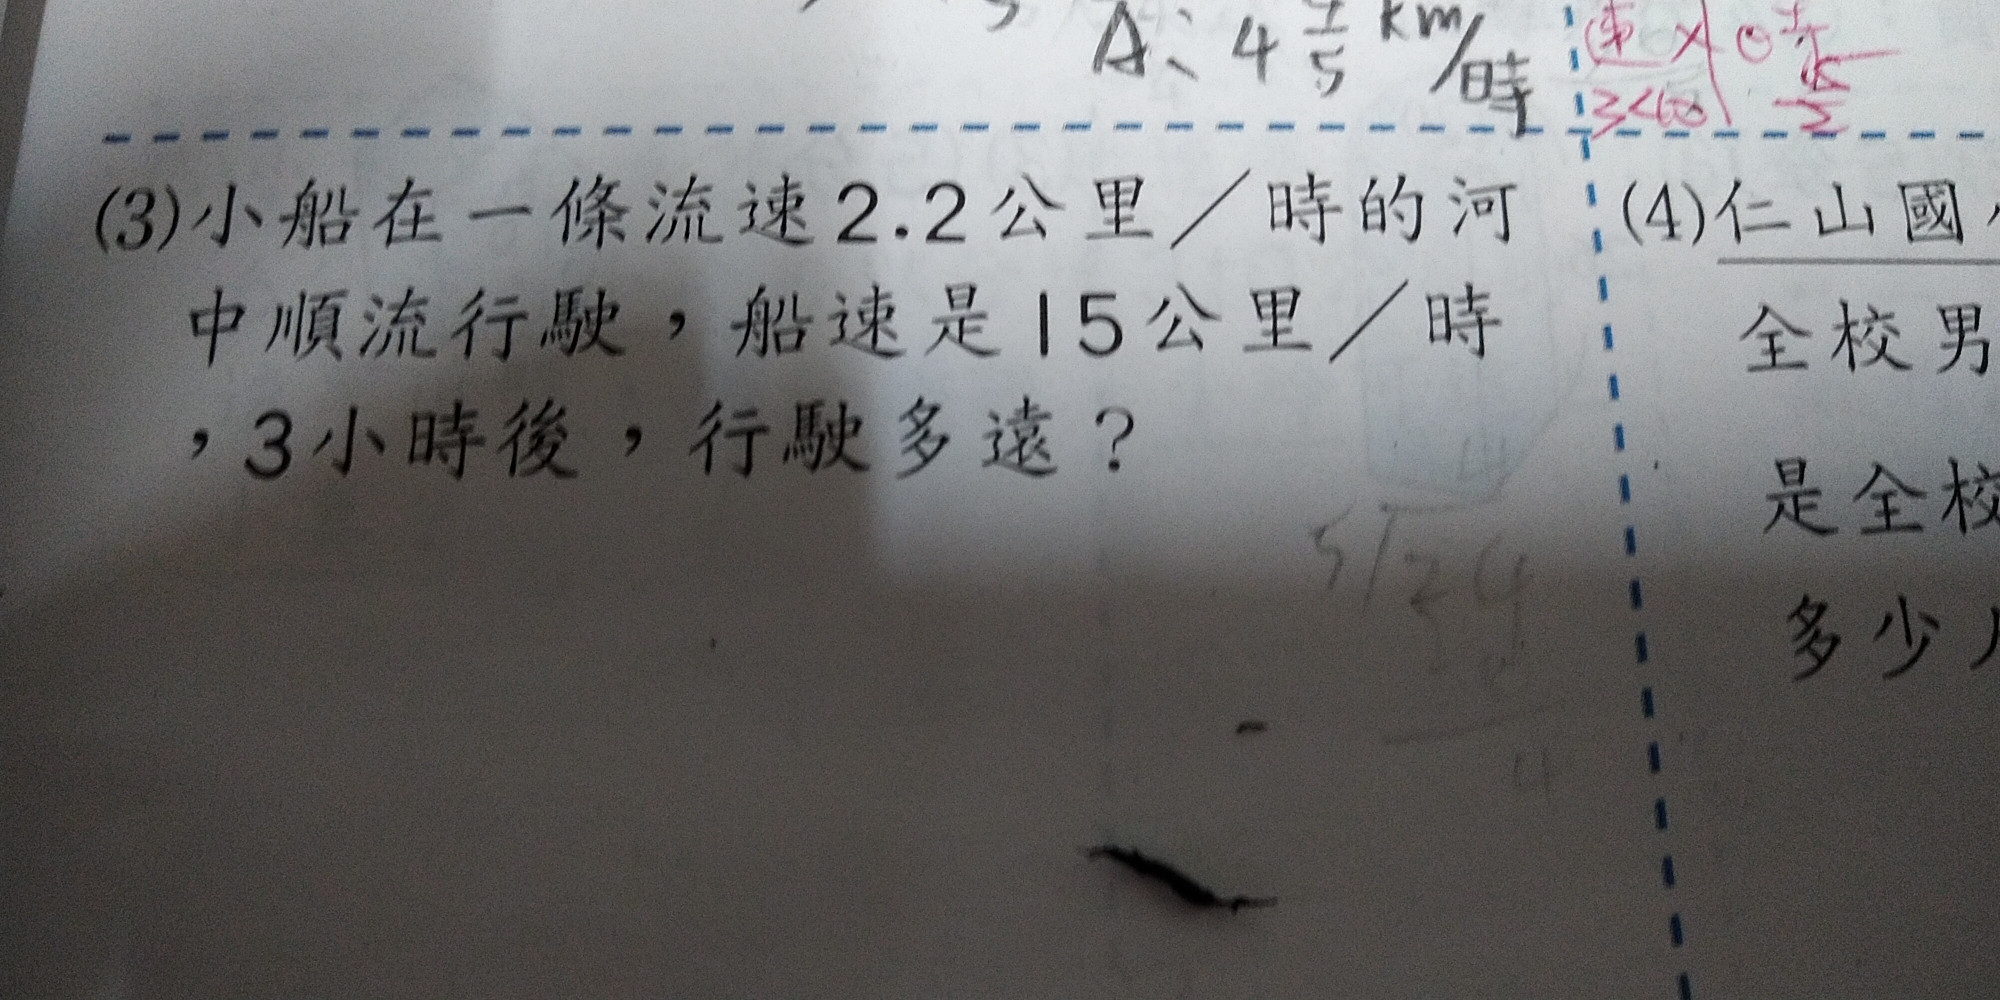 A: 4 4/5 km/時
(3)小船在一條流速2.2公里／時的河
中順流行駛，船速是15公里／時
，3小時後，行駛多遠？
(4)仁山國
全校男
是全校
多少